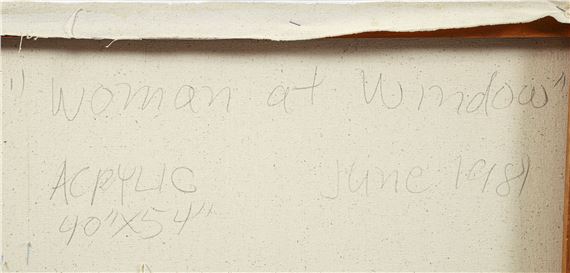 "Woman at Window"
ACRYLIC June 1981
40"X54"